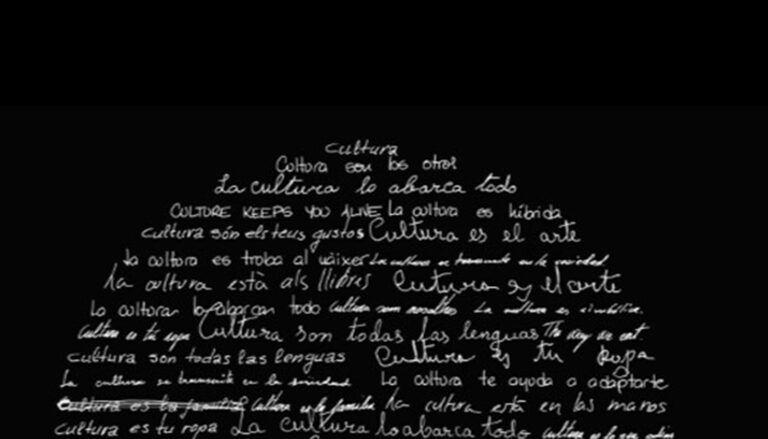 cultura
Cultura son los otros
La cultura lo abarca todo
CULTURE KEEPS YOU ALIVE La cultura es híbrida
cultura són els teus gustos Cultura es el arte
la cultura es troba al uàixer La cultura se transmite en la sociedad
La cultura està als llibres Cultura es el arte
La cultura lo abarcan todo Cultura som nosaltres La cultura es simbólica.
Cultura es tu ropa Cultura son todas las lenguas The way we eat.
cultura son todas las lenguas Cultura es tu ropa
La cultura se transmite en la sociedad La cultura te ayuda a adaptarte
cultura es la familia Cultura es la familia La cultura está en las manos
Cultura es tu ropa La cultura lo abarca todo cultura es lo que